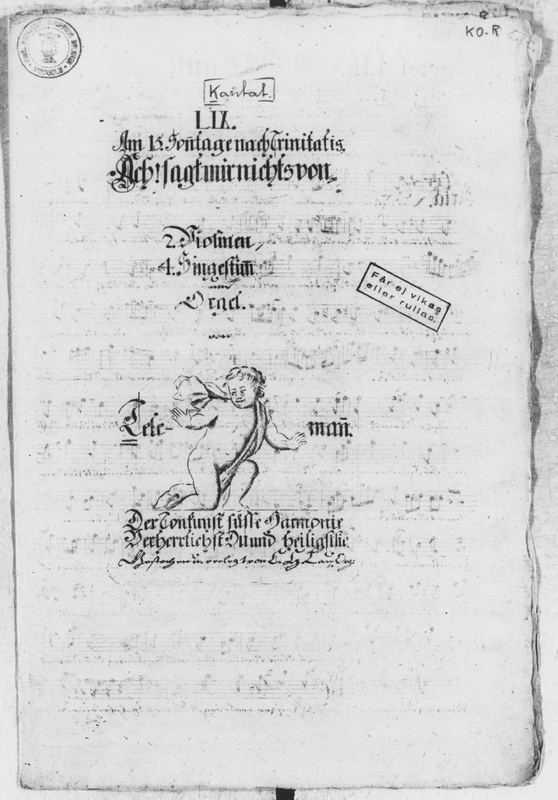 KO.R
Kantat.
LIX.
Am 15. Son̄tage nach Trinitatis.
Ach! sagt mir nichts von
2. Violinen,
4. Singestim̄
und
Orgel.
Tele- man̄.
Får ej vikas
eller rullas.
Der Tonkunst süsse Harmonie
Verherrlichst Du und heiligst sie.